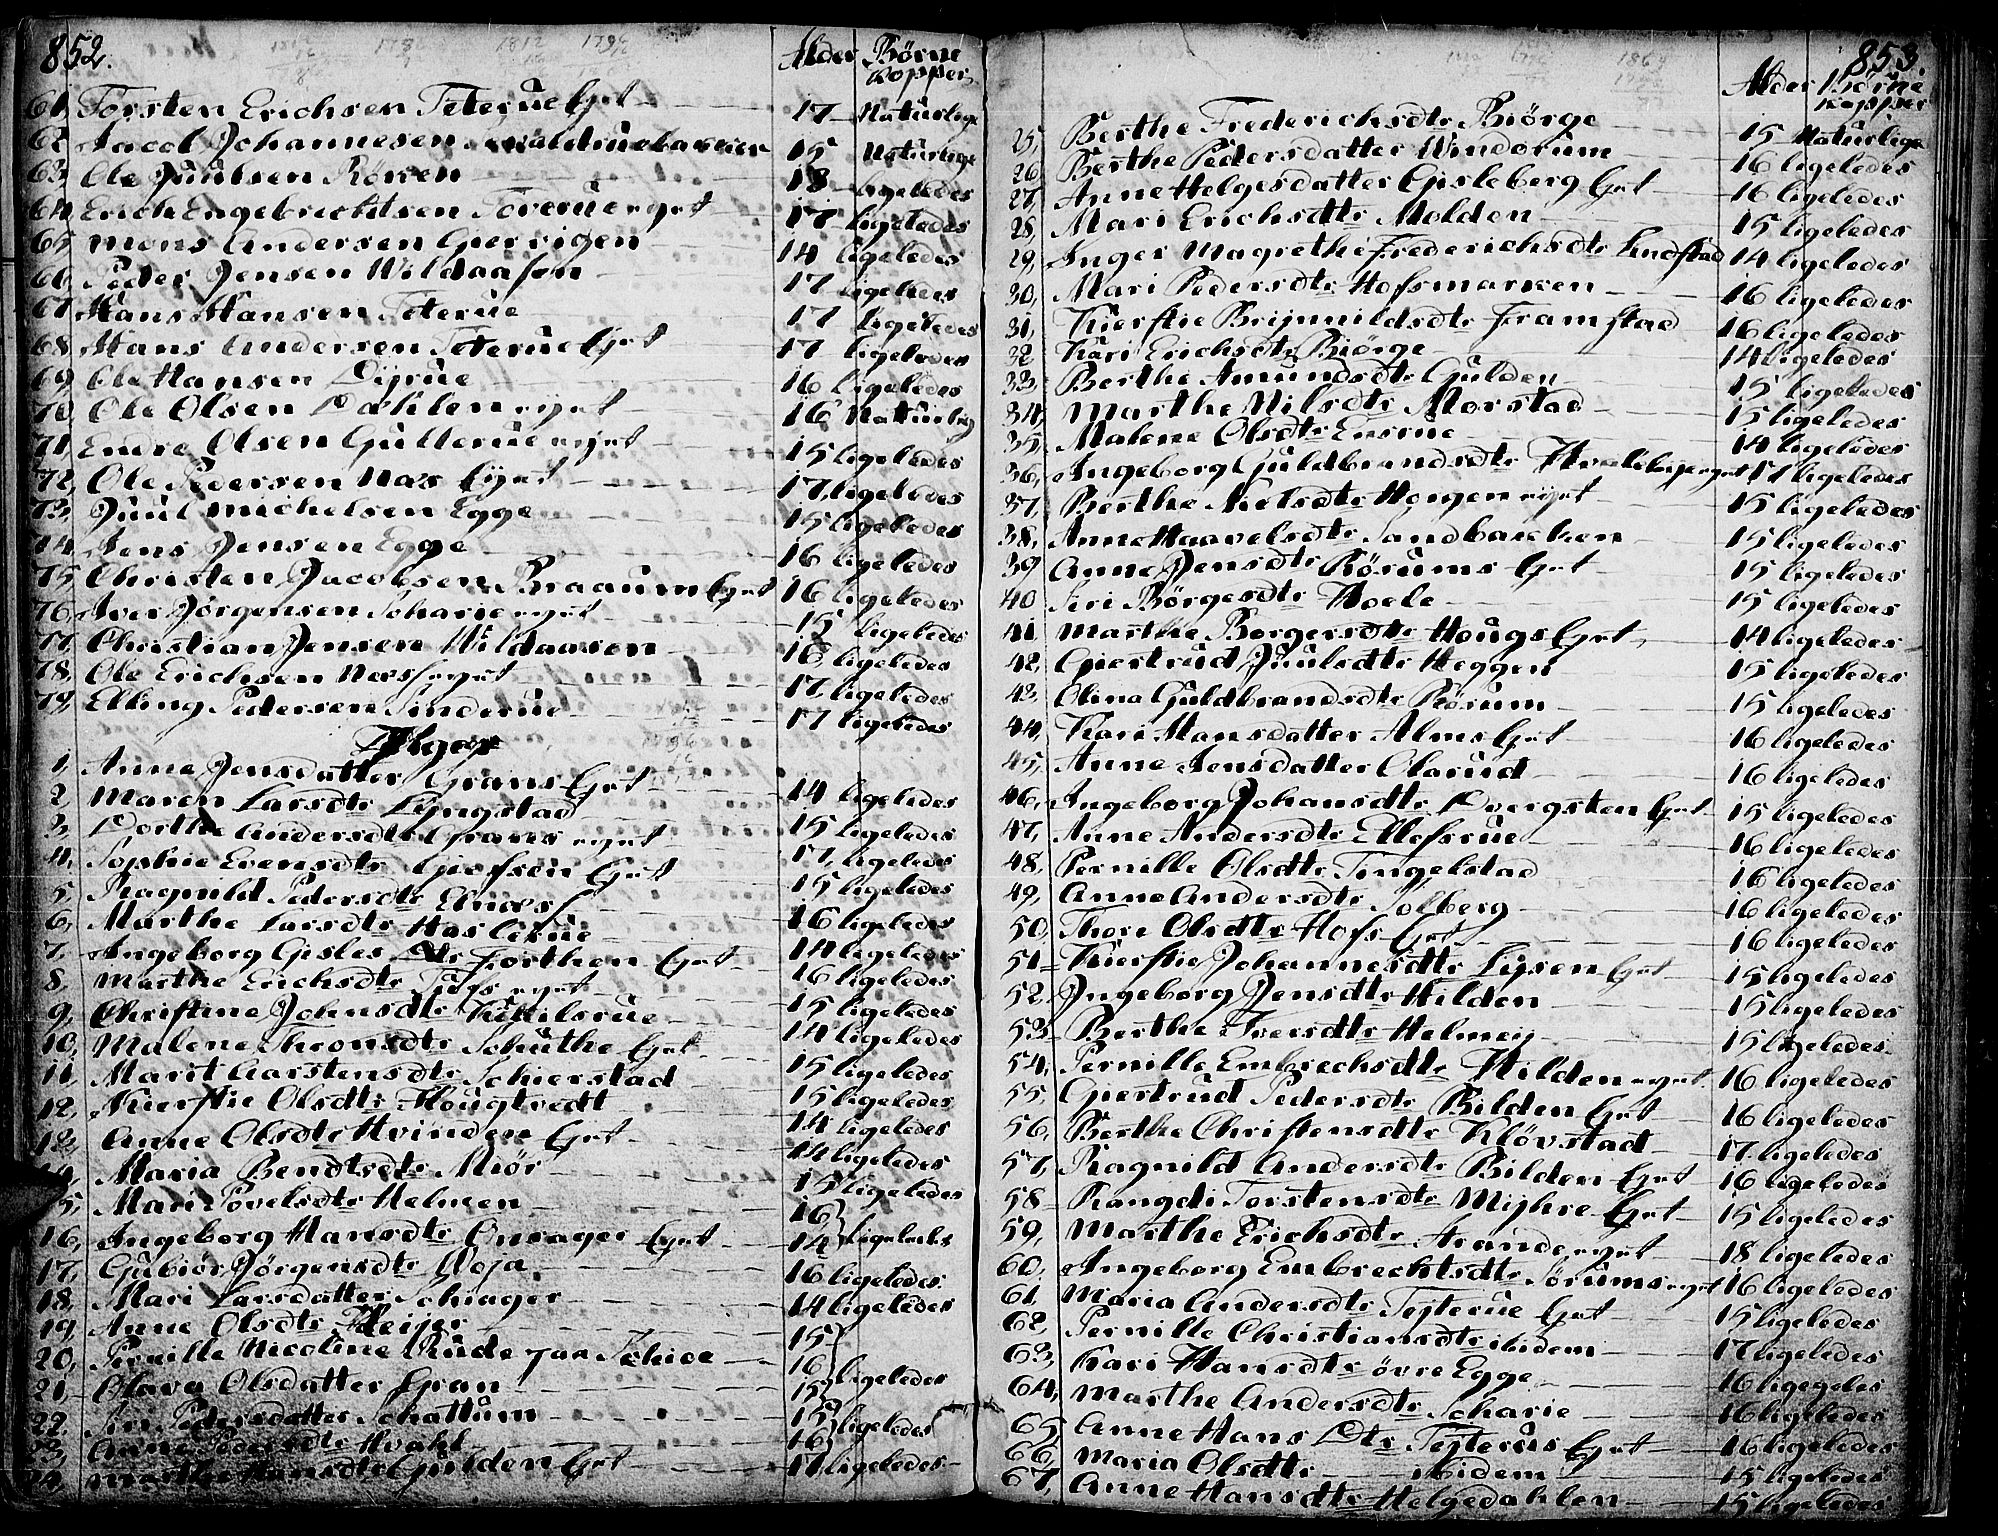 852.
Alder Børne Kopper
61, Torsten Erichsen Teterue Eyet 17 Naturlige
62 Jacob Johannesen 15 Naturlige
63, Ole Juulsen Rönen 18 ligeledes
64 Erich Engebrechtsen eyet 17 ligeledes
65, Mons Andersen 14 ligeledes
66 Peder Jensen Wildaasen 17 ligeledes
67 Hans Hansen Teterue 17 ligeledes
68 Hans Andersen Teterue Eyet 17 ligeledes
69, Ole Hansen Dijrue 16 ligeledes
70 Ole Olsen Dæhlen eyet 16 Naturlig
71, Endre Olsen Gullerue eyet 15 ligeledes
72, Ole Pedersen Næs Eyet 17, ligeledes
73, Juul Michelsen Egge 15 ligeledes
74 Jens Jensen Egge 16 ligeledes
75 Christen Jacobsen Braaum Eyet 16 ligeledes
76, Iver Jörgensen Scharie eyet 15 ligeledes
77 Christian Jensen Wildaasen 16 ligeledes
78, Ole Erichsen Næss eyet 17, ligeledes
79, Elling Pedersen Sinderue 17 ligeledes
Piger
1, Anne Jensdatter Grans Eyet 14 ligeledes
2 Maren Larsdtr Lyngstad 15 ligeledes
3, Dorthe Andersdtr Grans eyet 17, ligeledes
4, Sophie Evensdtr Eyet 15 ligeledes
5, Ragnild Pedersdtr 16 ligeledes
6, Marthe Larsdtr Haslerue 14 ligeledes
7, Ingeborg Gisles Dtr Eyet 16 ligeledes
8, Marthe Erichsdtr eyet 15 ligeledes
9, Christine Johnsdtr Ketilsrue 14 ligeledes
10, Malene Theonsdtr Schuthe Eyet 15 ligeledes
11, Marit Carstensdtr Schierstad 15 ligeledes
12, Kierstie Olsdtr Hougtvedt 14 ligeledes
13, Anne Olsdtr Hvinden Eyet 14 ligeledes
14, Maria Bendtsdtr Miör 15 ligeledes
15, Mari Povelsdtr Helmen 16
16, Ingeborg Hansdtr Onsager Eyet 14 ligeledes
17, Gubiör Jörgensdtr Woja 16 ligeledes
18, Mari Larsdatter Schiager 14 ligeledes
19, Anne Olsdtr 15
20, Pernille Nicoline Rude 16 ligeledes
21, Olava Olsdatter Gran 15
22, Siri Pedersdatter Schattum 15 ligeledes
23, Anne Pedersdtr Hvahl 16
24, Marthe Hansdtr Gulden Eyet 17 ligeledes
853.
Alder Børne Kopper
25, Berthe Frederichsdtr Biörge 15 Naturlige
26 Berthe Pedersdatter Windorum 16 ligeledes
27, Anne Helgesdatter Gisleberg Eyet 16 ligeledes
28, Mari Erichsdtr Molden 15 ligeledes
29, Inger Magrethe Frederichsdtr Lindstad 14 ligeledes
30, Mari Pedersdtr Hofsmarken 16 ligeledes
31, Kierstie Brijnnildsdtr Framstad 16 ligeledes
32 Kari Erichsdtr Biörge 14 ligeledes
33, Berthe Amundsdtr Gulden 15 ligeledes
34, Marthe Nilsdtr Morstad 15 ligeledes
35, Malene Olsdtr 14 ligeledes
36, Ingeborg Guldbrandsdtr eyet 17 ligeledes
37, Berthe Nielsdtr Hougen eyet 15 ligeledes
38, Anne Haavelsdtr Sandbacken 15 ligeledes
39 Anne Jensdtr Rörums Eyet 15 ligeledes
40 Siri Börgesdtr Hoele 15 ligeledes
41 Marthe Borgersdtr Hougs Eyet 14 ligeledes
42, Giertrud Juulsdtr Heggen 15 ligeledes
43, Olina Guldbrandsdtr Rörum 15 ligeledes
44, Kari Hansdatter Alms Eyet 16 ligeledes
45, Anne Jensdatter Olarud 16 ligeledes
46, Ingeborg Johansdtr Dvergsten Eyet 15 ligeledes
47, Anne Andersdtr Ellefsrue 16 ligeledes
48, Pernille Olsdtr Tingelstad 16 ligeledes
49, Anne Andersdtr Solberg 16 ligeledes
50, Thore Olsdtr Hofs Eyet 16 ligeledes
51 Kierstie Johannesdtr Lysen Eyet 15 ligeledes
52, Ingeborg Jensdtr Hilden 15 ligeledes
53 Berthe Iversdtr Helmey 15 ligeledes
54, Pernille Embrechsdtr Hilden eyet 16 ligeledes
55, Giertrud Pedersdtr Bilden Eyet 16 ligeledes
56, Berthe Christensdtr Klövstad 17, ligeledes
57, Ragnild Andersdtr Bilden Eyet 16 ligeledes
58 Rangdi Torstensdtr Mijhre Eyet 15 ligeledes
59, Marthe Erichsdtr eyet 18 ligeledes
60, Ingeborg Embrechtsdtr Sörums eyet 16 ligeledes
61, Maria Andersdtr Tejterue Eyet 15 ligeledes
62, Pernille Christiansdtr ibidem 17 ligeledes
63, Kari Hansdtr övre Egge 16 ligegeles
64, Marthe Andersdtr Scharie 16 ligeledes
65 Anne Hans Dtr Tejterus Eyet 16 ligeledes
66, Maria Olsdtr ibidem 15 ligeledes
67, Anne Hansdtr Helgedahlen 15 ligeledes